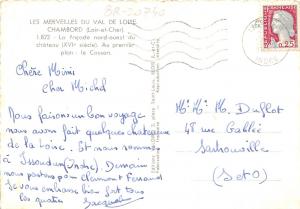 BR-30740
LES MERVEILLES DU VAL DE LOIRE
CHAMBORD (Loir-et-Cher)
1.672 - La façade nord-ouest du
château (XVIe siècle). Au premier
plan : le Cosson.
0,25
Chère Mimi
cher Michel
Nous faisons un bon voyage
nous avons fait quelques châteaux
de la Loire. Et nous sommes
à Issoudun (Indre). Demain
nous partons pour Clermont Ferrand
Je vous embrasse bien fort tous
les quatre Jacques
Mr Mme M. Duflot
48 rue Gallié
Sartrouville
(S et O)